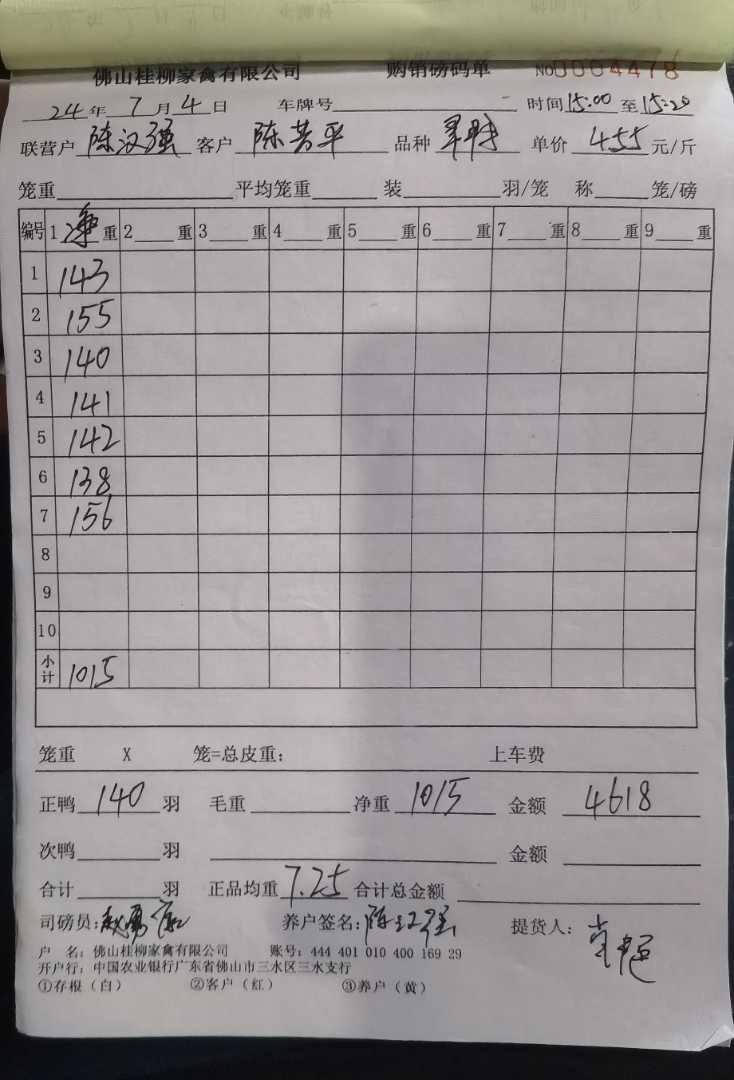 佛山桂柳家禽有限公司 购销磅码单 No0004478
24年7月4日 车牌号 时间15:00至15:20
联营户 陈汉强 客户 陈芳平 品种 单价 455 元/斤
笼重 平均笼重 装 羽/笼 称 笼/磅
编号 1净重 2 重 3 重 4 重 5 重 6 重 7 重 8 重 9 重
1 143
2 155
3 140
4 141
5 142
6 138
7 156
8
9
10
小计 1015
笼重 X 笼=总皮重: 上车费
正鸭 140 羽 毛重 净重 1015 金额 4618
次鸭 羽 金额
合计 羽 正品均重 7.25 合计总金额
司磅员: 养户签名: 陈汉强 提货人:
户 名: 佛山桂柳家禽有限公司 账号: 444 401 010 400 169 29
开户行: 中国农业银行广东省佛山市三水区三水支行
①存根（白） ②客户（红） ③养户（黄）